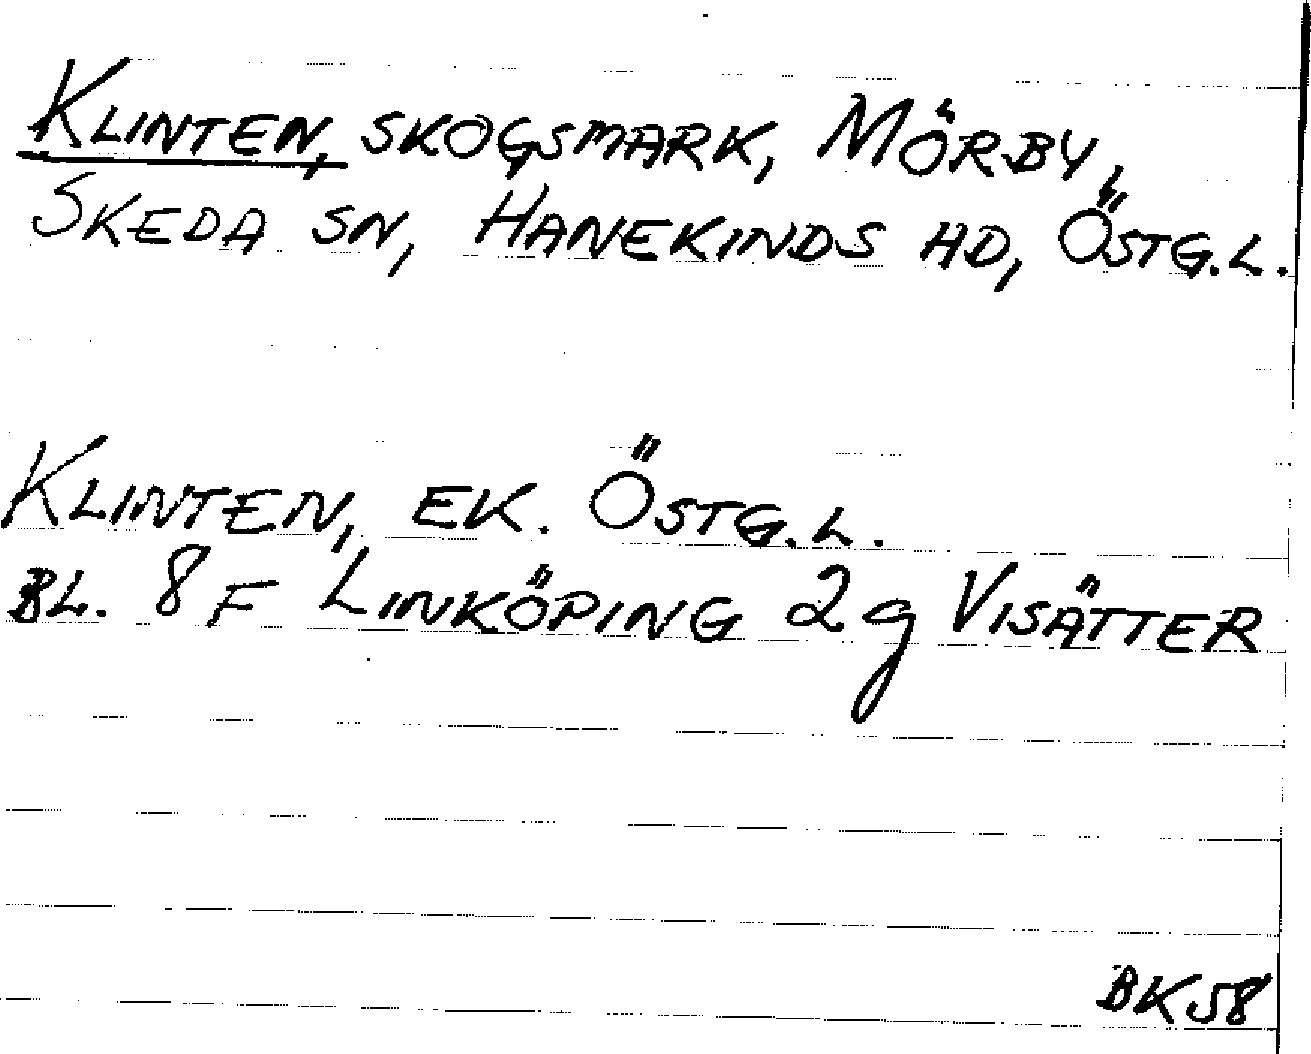 KLINTEN, SKOGSMARK, MÖRBY,
SKEDA SN, HANEKINDS HD, ÖSTG.L.
KLINTEN, EK. ÖSTG.L.
BL. 8 F LINKÖPING 2 g VISÄTTER
BK58